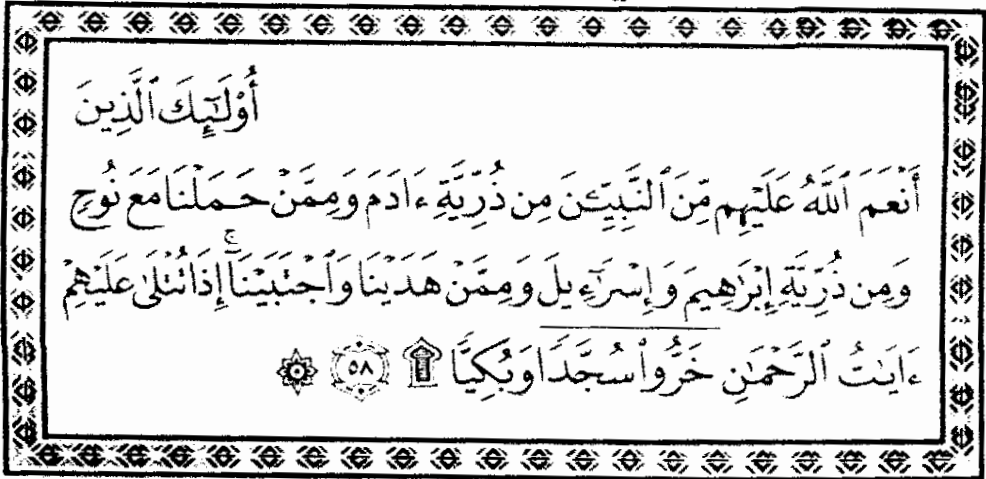 أُوْلَٰٓئِكَ ٱلَّذِينَ
أَنْعَمَ ٱللَّهُ عَلَيْهِم مِّنَ ٱلنَّبِيِّـۧنَ مِن ذُرِّيَّةِ ءَادَمَ وَمِمَّنْ حَمَلْنَا مَعَ نُوحٍ
وَمِن ذُرِّيَّةِ إِبْرَٰهِيمَ وَإِسْرَٰٓءِيلَ وَمِمَّنْ هَدَيْنَا وَٱجْتَبَيْنَآۚ إِذَا تُتْلَىٰ عَلَيْهِمْ
ءَايَٰتُ ٱلرَّحْمَٰنِ خَرُّوا۟ سُجَّدًا وَبُكِيًّا ۩ ٥٨ ۞